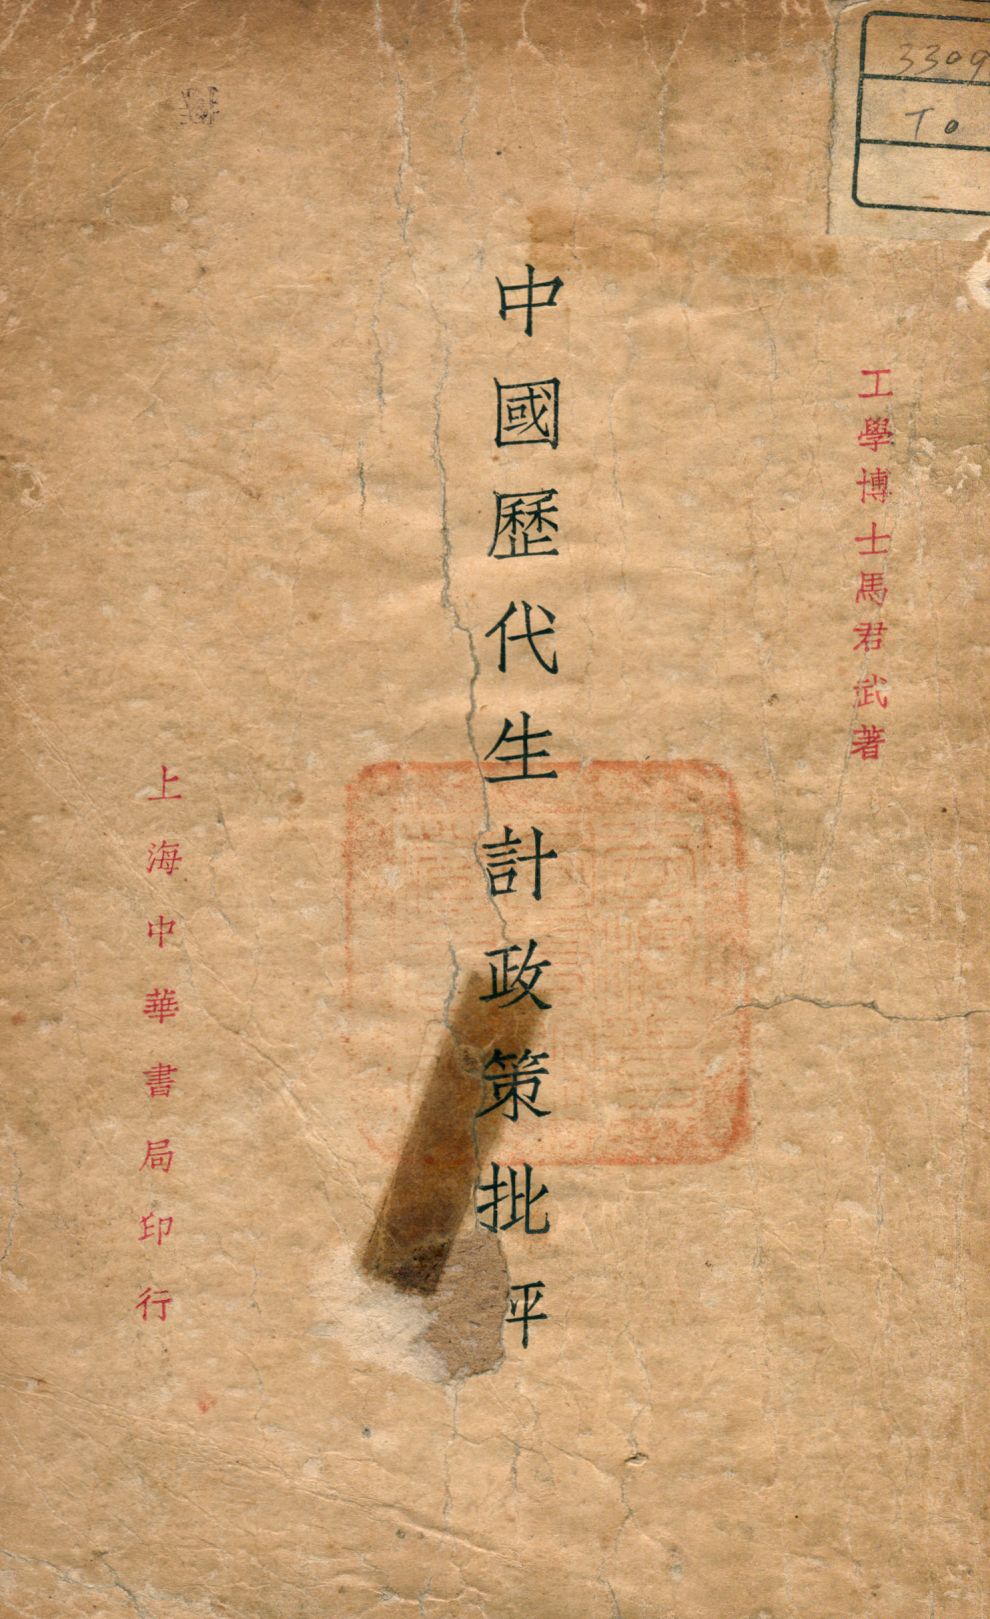 3309
To
工學博士馬君武著
中國歷代生計政策批平
上海中華書局印行